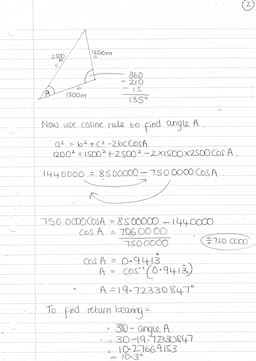 2
2500
c
1200m
A
1500m
360
- 210
- 15
135°
Now use cosine rule to find angle A.
a² = b² + c² - 2bc Cos A
1200² = 1500² + 2500² - 2×1500×2500 Cos A.
1440000 = 8500000 - 7500000 Cos A.
7500000 Cos A = 8500000 - 1440000
Cos A = 7060000
7500000
Cos A = 0.9413
A = cos⁻¹(0.9413)
A = 19.72330847°
To find return bearing =
- angle A
30 - 19.72330847
= 10.27669153
= 10.3°